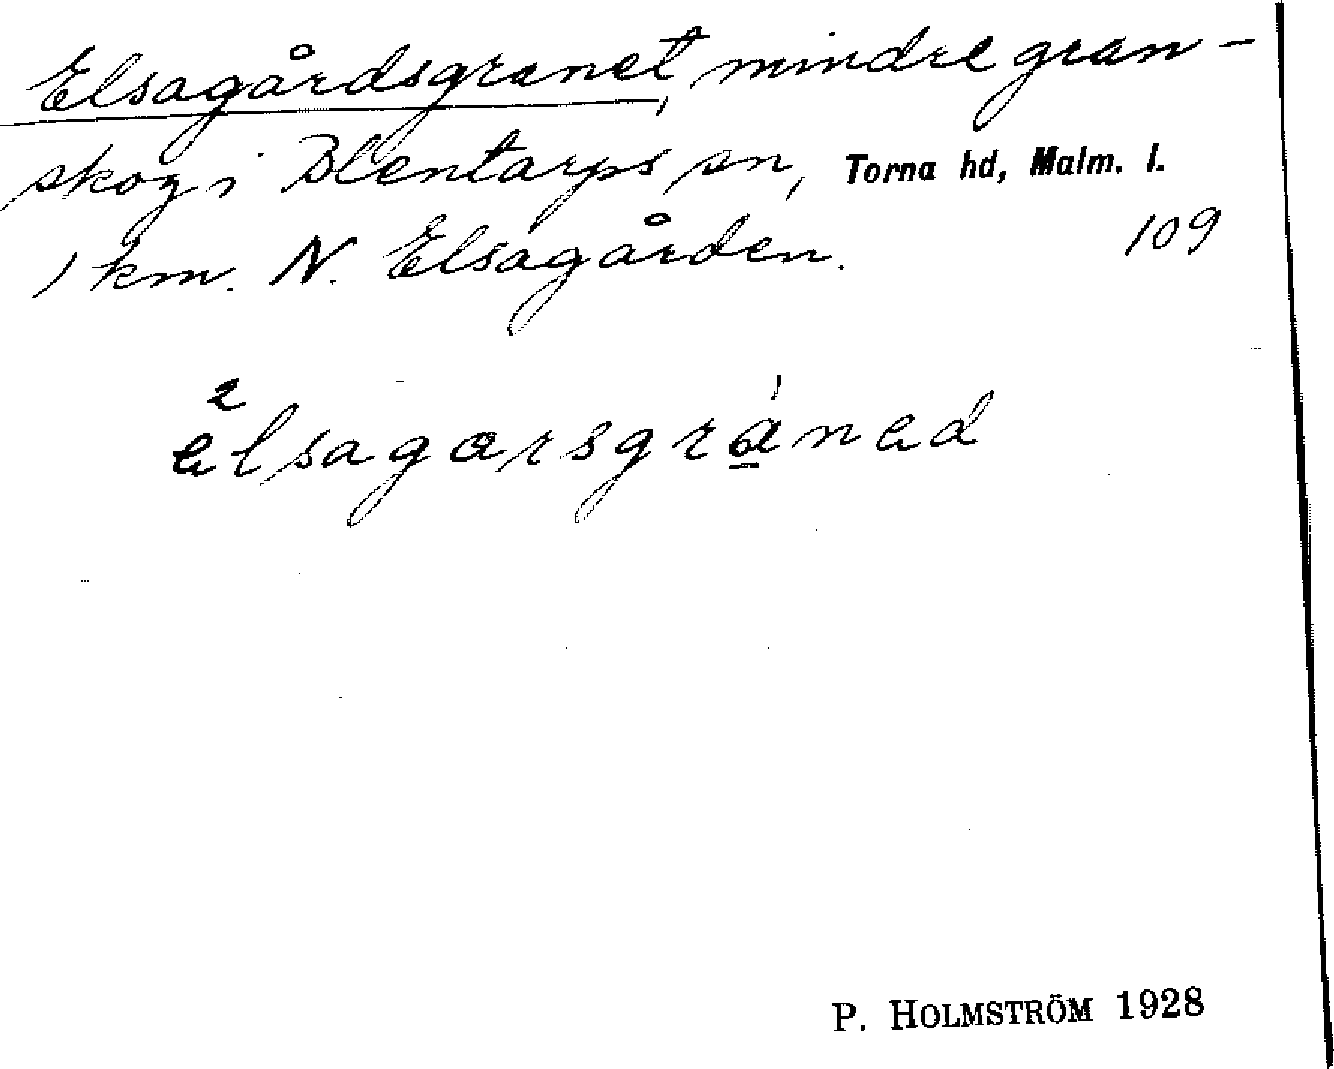 Elsagårdsgranet, mindre gran-
skog i Blentarps sn, Torna hd, Malm. l.
1 km. N. Elsagården. 109
älsagarsgranad
P. HOLMSTRÖM 1928